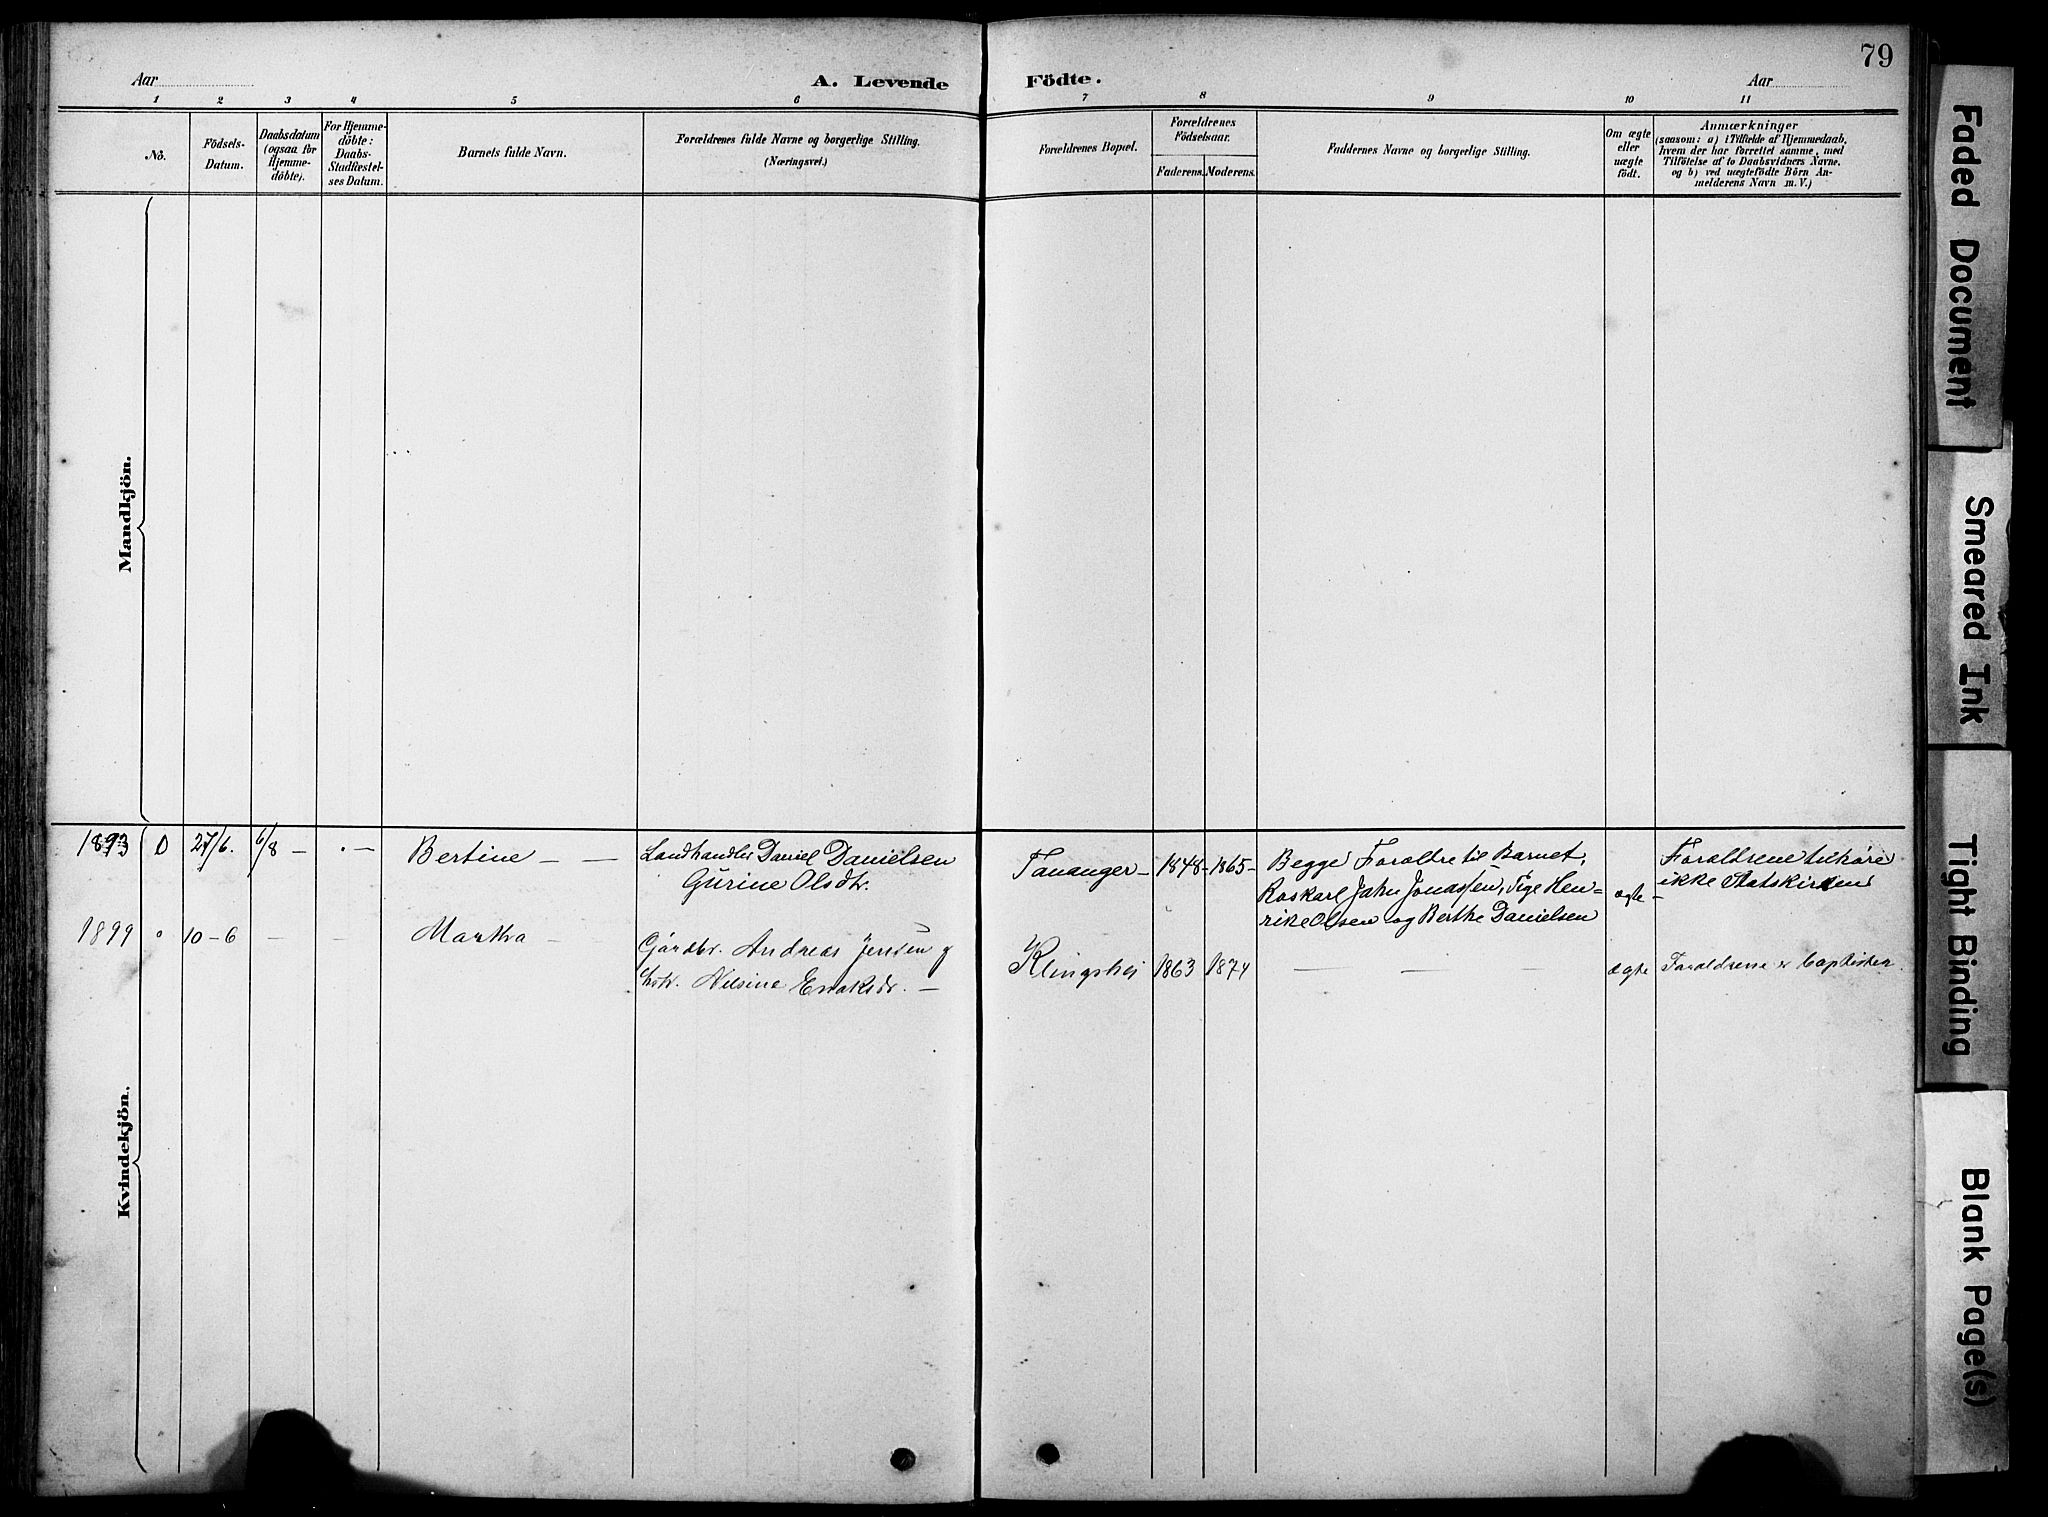 79
Aar
A. Levende Födte.
Aar
1 2 3 4 5 6 7 8 9 10 11
No.
Födsels-
Datum.
Daabsdatum
(ogsaa for
Hjemme-
döbte).
For Hjemme-
döbte:
Daabs-
Stadfæstel-
ses Datum.
Barnets fulde Navn.
Forældrenes fulde Navne og borgerlige Stilling.
(Næringsvei.)
Forældrenes Bopæl.
Forældrenes
Födselsaar.
Faderens. Moderens.
Faddernes Navne og borgerlige Stilling.
Om ægte
eller
uægte
födt.
Anmærkninger
(saasom: a) i Tilfælde af Hjemmedaab,
hvem der har forrettet samme, med
Tilföielse af to Daabsvidners Navne.
og b) ved uægtefödte Börn An-
melderens Navn m.V.)
Mandkjön.
Kvindekjön.
1893 0 27/6. 6/8 — . — Bertine — —
Landhandler Daniel Danielsen
Gurine Olsdtr.
Tananger — 1848 - 1865 -
Begge Foraldre til Barnet,
Kaskarl Jahn Jonassen, Pige Hen-
rike Olsen og Berthe Danielsen
ægte -
Foraldrene tilhøre
ikke Statskirken
1899 10-6 — — Martha —
Gårdbr. Andreas Jensen og
hstr. Nilsine Enoksdr. —
Klingshei 1863 1874 — — —
ægte
Foraldrene er baptister.
Faded Document
Smeared Ink
Tight Binding
Blank Page(s)